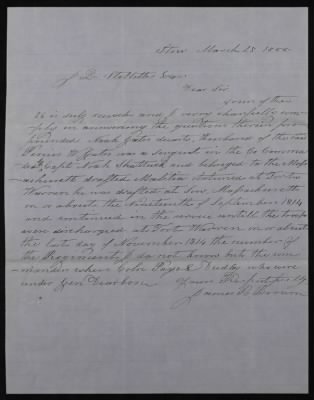 Stow March 28. 1856
J D. Stalletter Esqr
Dear Sir
yours of the
is duly received and I very cheerfully com-
ply in answering the question therein pro-
pounded. Noah Gates deceast, Husband of the
Gates was a sergeant in the Co Comma
by Capt Noah Shattuck and belonged to the Mass-
achusetts drafted Malitia stationed at Fort
Warren he was drafted at Stow Massachusetts
on or about the Nineteenth of September 1814
and continued in the service untill the troops
were discharged at Fort Warren on or about
the last day of November 1814 the number of
the Regiment I do not know but the com-
mander where Colon Page & Dudley who were
under Gen Dearborn
Yours Respectfully
James Brown